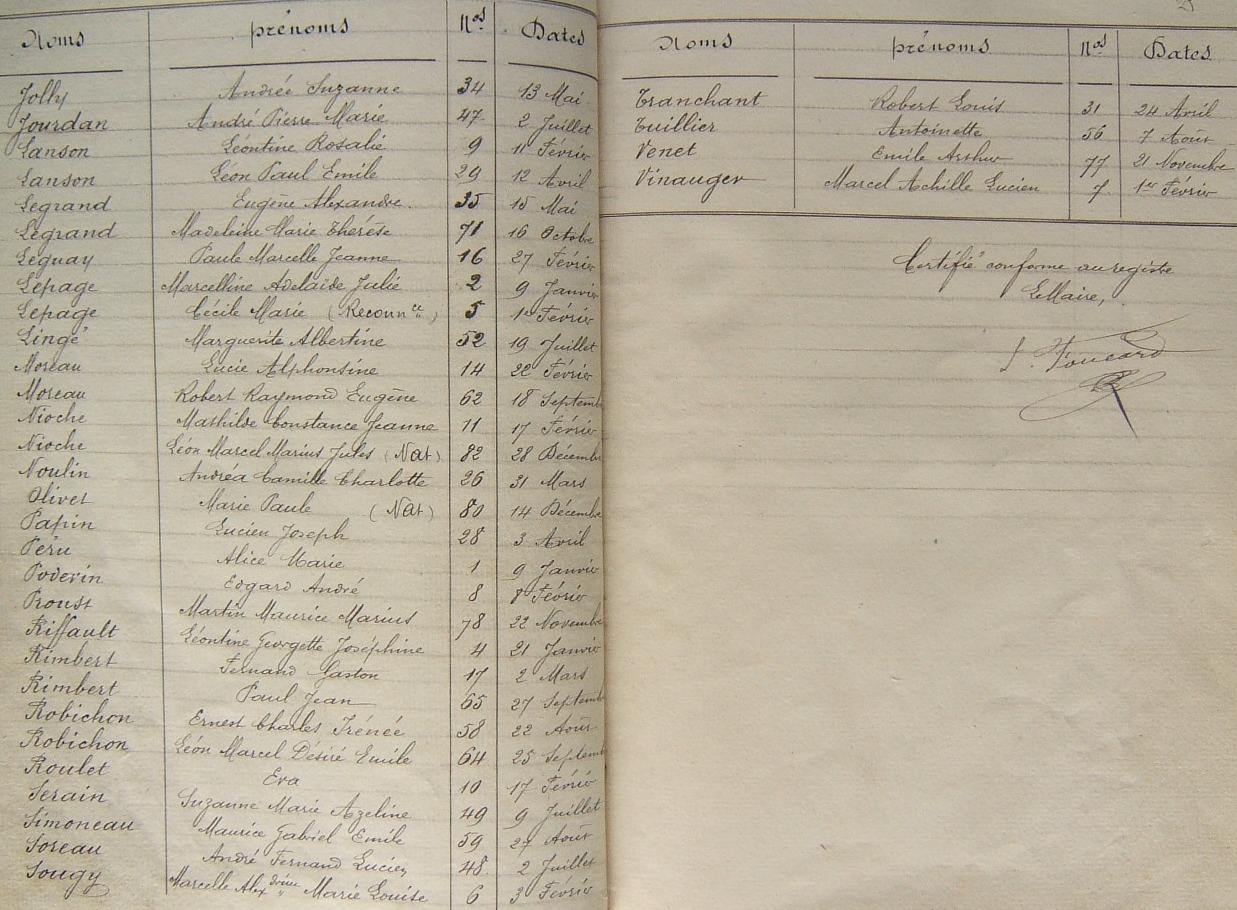 Noms prénoms Nos Dates
Jolly Andrée Suzanne 34 13 Mai
Jourdan André Pierre Marie 47 2 Juillet
Lanson Léontine Rosalie 9 11 Février
Lanson Léon Paul Emile 29 12 Avril
Legrand Eugène Alexandre. 35 15 Mai
Legrand Madeleine Marie Thérèse 71 16 Octobre
Leguay Paule Marcelle Jeanne 16 27 Février
Lepage Marcelline Adelaïde Julie 2 9 Janvier
Lepage Cécile Marie (Reconnce) 5 1er Février
Lingé Marguerite Albertine 52 19 Juillet
Moreau Lucie Alphonsine 14 22 Février
Moreau Robert Raymond Eugène 62 18 Septemb
Nioche Mathilde Constance Jeanne 11 17 Février
Nioche Léon Marcel Marius Jules (Nat) 82 28 Décemb
Noulin Andréa Camille Charlotte 26 31 Mars
Olivet Marie Paule (Nat) 80 14 Décemb
Papin Lucien Joseph 28 3 Avril
Péru Alice Marie 1 9 Janvier
Poderin Edgard André 8 8 Février
Proust Martin Maurice Marius 78 22 Novemb
Riffault Léontine Georgette Joséphine 4 21 Janvier
Rimbert Fernand Gaston 17 2 Mars
Rimbert Paul Jean 65 27 Septemb
Robichon Ernest Charles Irénée 58 22 Août
Robichon Léon Marcel Désiré Emile 64 25 Septemb
Roulet Eva 10 17 Février
Serain Suzanne Marie Azeline 49 9 Juillet
Simoneau Maurice Gabriel Emile 59 27 Août
Soreau André Fernand Lucien 48 2 Juillet
Sougy Marcelle Alexdrine Marie Louise 6 3 Février
Noms prénoms Nos Dates
Tranchant Robert Louis 31 24 Avril
Tuillier Antoinette 56 7 Août
Venet Emile Arthur 77 21 Novembre
Vinauger Marcel Achille Lucien 7 1er Février
Certifié conforme au registre
Le Maire,
Foucard